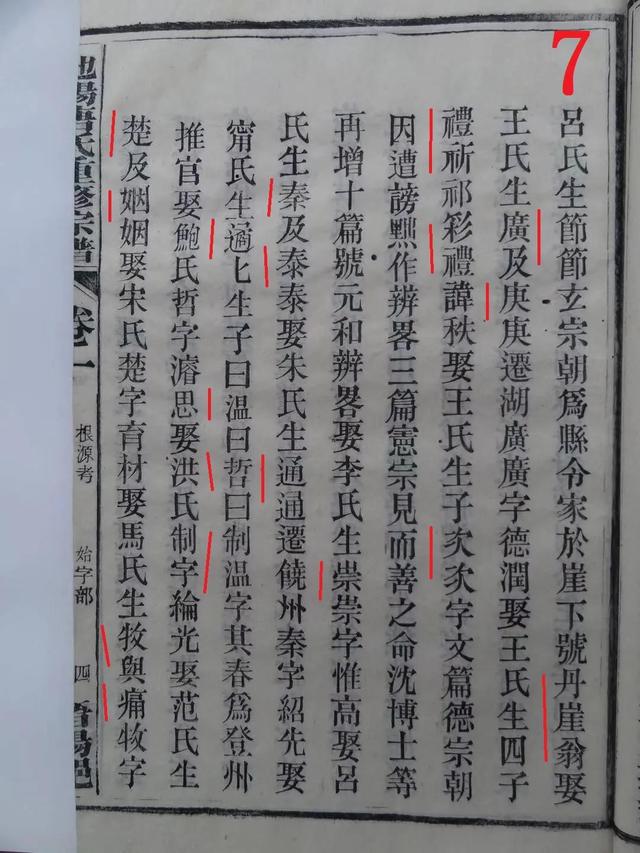 7
呂氏生節節玄宗朝爲縣令家於崖下號丹崖翁娶
王氏生廣及庚庚遷湖廣廣字德潤娶王氏生四子
禮祈祁彩禮諱秩娶王氏生子次次字文篇德宗朝
因遭謗黜作辨畧三篇憲宗見而善之命沈博士等
再增十篇號元和辨畧娶李氏生崇崇字惟高娶呂
氏生秦及泰泰娶朱氏生通通遷饒州秦字紹先娶
甯氏生適七生子曰溫曰哲曰制溫字其春爲登州
推官娶鮑氏哲字濬思娶洪氏制字綸光娶范氏生
楚及姻姻娶宋氏楚字育材娶馬氏生牧與痛牧字
池陽唐氏重修宗譜
卷一
根源考
始字部
四
晉陽邑